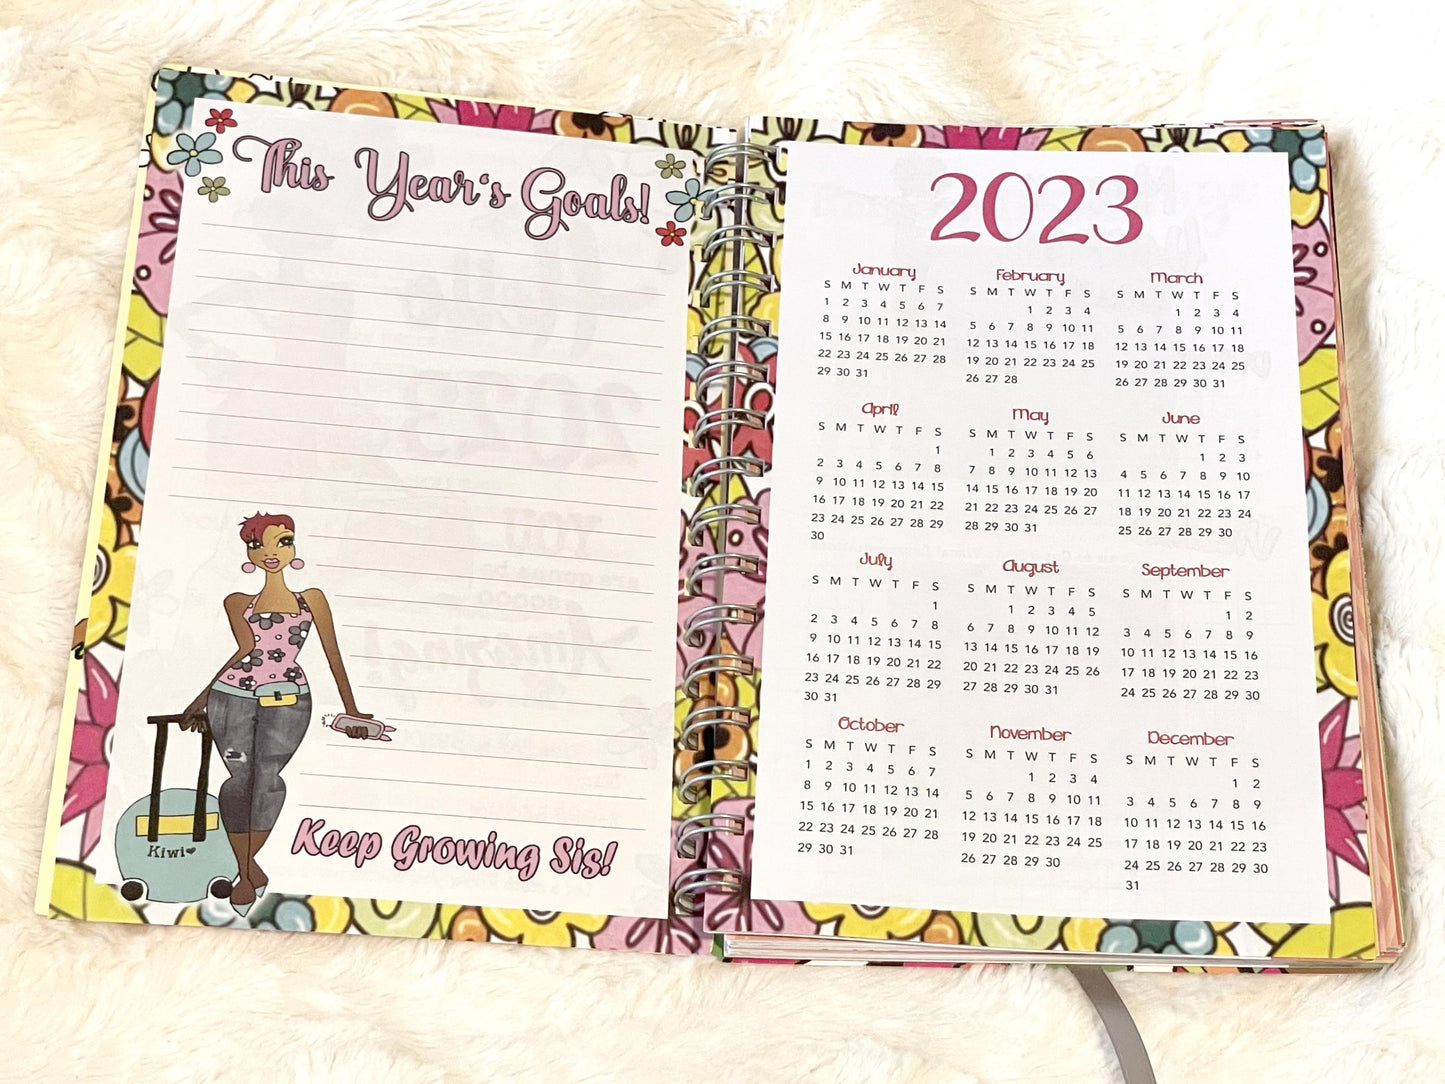 This Year's Goals!
Kiwi
Keep Growing Sis!
2023
January
S M T W T F S
1 2 3 4 5 6 7
8 9 10 11 12 13 14
15 16 17 18 19 20 21
22 23 24 25 26 27 28
29 30 31
February
S M T W T F S
1 2 3 4
5 6 7 8 9 10 11
12 13 14 15 16 17 18
19 20 21 22 23 24 25
26 27 28
March
S M T W T F S
1 2 3 4
5 6 7 8 9 10 11
12 13 14 15 16 17 18
19 20 21 22 23 24 25
26 27 28 29 30 31
April
S M T W T F S
1
2 3 4 5 6 7 8
9 10 11 12 13 14 15
16 17 18 19 20 21 22
23 24 25 26 27 28 29
30
May
S M T W T F S
1 2 3 4 5 6
7 8 9 10 11 12 13
14 15 16 17 18 19 20
21 22 23 24 25 26 27
28 29 30 31
June
S M T W T F S
1 2 3
4 5 6 7 8 9 10
11 12 13 14 15 16 17
18 19 20 21 22 23 24
25 26 27 28 29 30
July
S M T W T F S
1
2 3 4 5 6 7 8
9 10 11 12 13 14 15
16 17 18 19 20 21 22
23 24 25 26 27 28 29
30 31
August
S M T W T F S
1 2 3 4 5
6 7 8 9 10 11 12
13 14 15 16 17 18 19
20 21 22 23 24 25 26
27 28 29 30 31
September
S M T W T F S
1 2
3 4 5 6 7 8 9
10 11 12 13 14 15 16
17 18 19 20 21 22 23
24 25 26 27 28 29 30
October
S M T W T F S
1 2 3 4 5 6 7
8 9 10 11 12 13 14
15 16 17 18 19 20 21
22 23 24 25 26 27 28
29 30 31
November
S M T W T F S
1 2 3 4
5 6 7 8 9 10 11
12 13 14 15 16 17 18
19 20 21 22 23 24 25
26 27 28 29 30
December
S M T W T F S
1 2
3 4 5 6 7 8 9
10 11 12 13 14 15 16
17 18 19 20 21 22 23
24 25 26 27 28 29 30
31